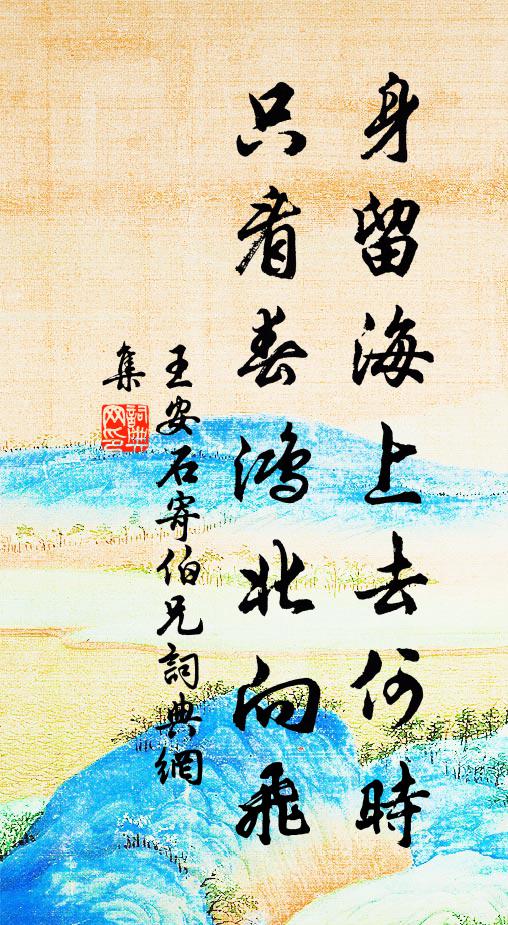 身留海上去何時
只看春鴻北向飛
王安石寄伯兄詞典網
集
詞典網印